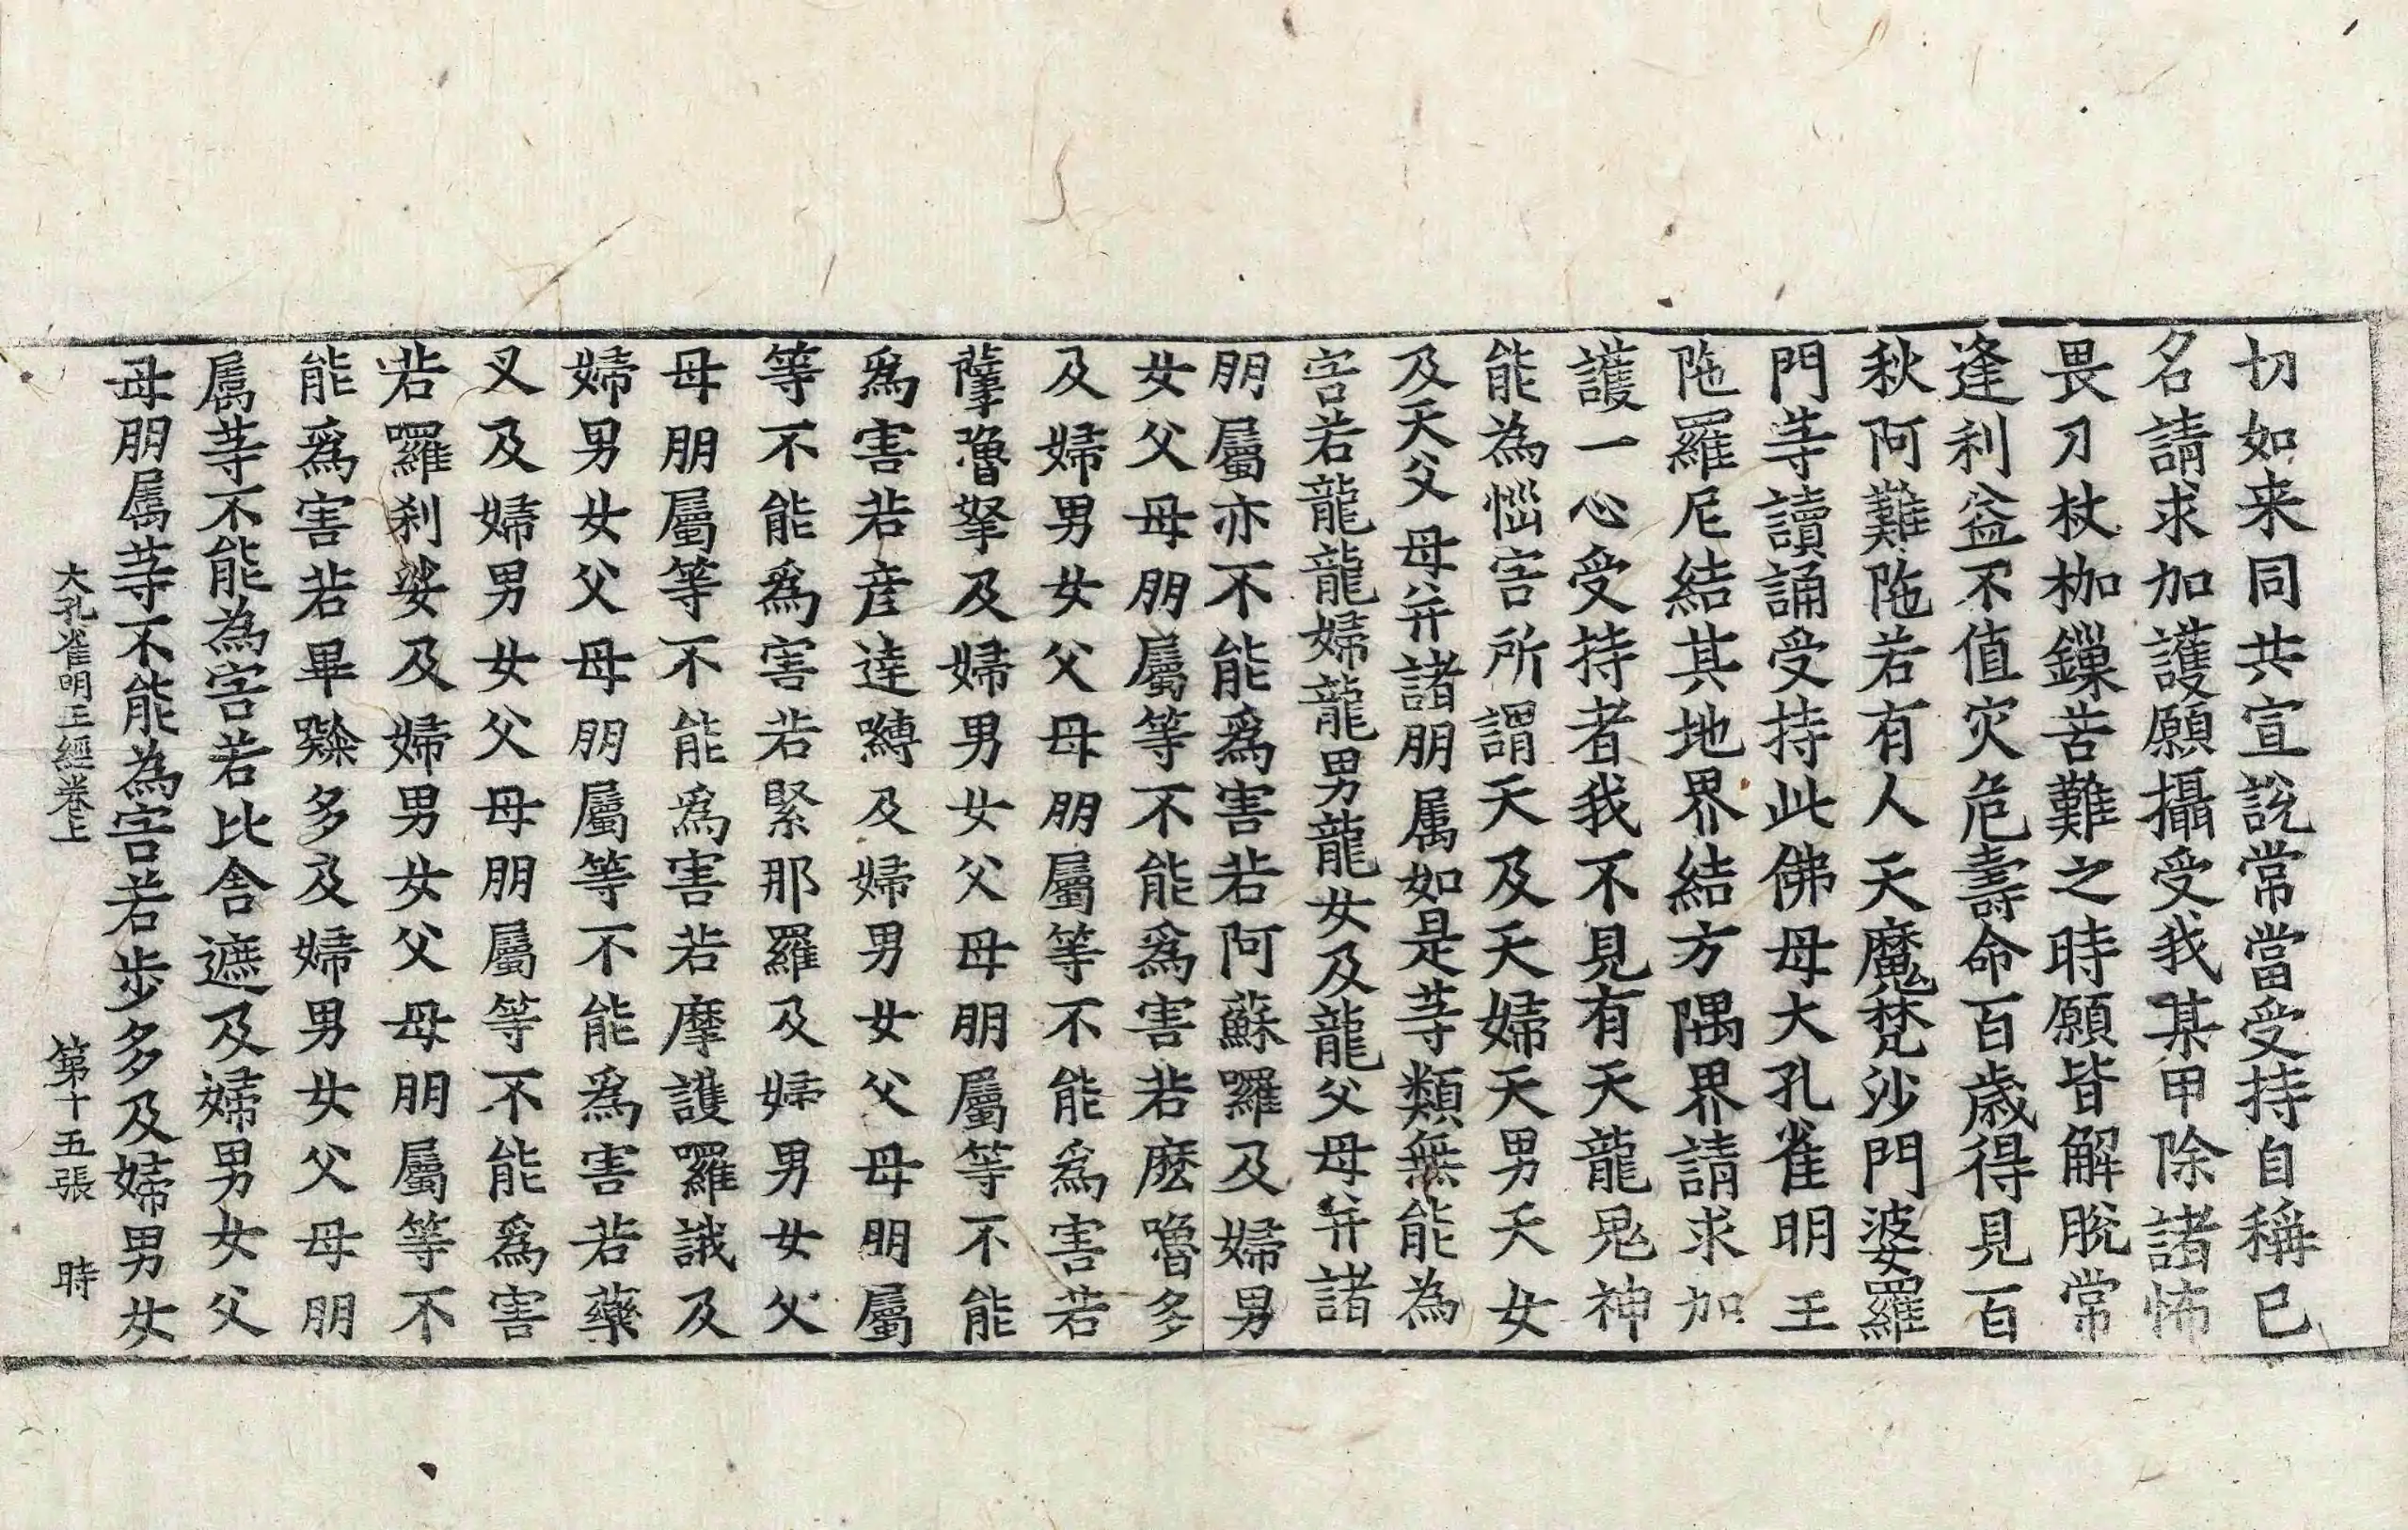 切如来同共宣說常當受持自稱已
名請求加護願攝受我某甲除諸怖
畏刀杖枷鏁苦難之時願皆解脫常
逢利益不值灾危壽命百歲得見百
秋阿難陁若有人天魔梵沙門婆羅
門等讀誦受持此佛母大孔雀明王
陁羅尼結其地界結方隅界請求加
護一心受持者我不見有天龍鬼神
能為惱害所謂天及天婦天男天女
及天父母并諸朋属如是等類無能為
害若龍龍婦龍男龍女及龍父母并諸
朋屬亦不能爲害若阿蘇囉及婦男
女父母朋屬等不能爲害若麽嚕多
及婦男女父母朋屬等不能爲害若
蘖嚕拏及婦男女父母朋屬等不能
爲害若彦達嚩及婦男女父母朋屬
等不能爲害若緊那羅及婦男女父
母朋屬等不能爲害若摩護囉誐及
婦男女父母朋屬等不能爲害若藥
叉及婦男女父母朋屬等不能爲害
若囉刹娑及婦男女父母朋屬等不
能爲害若畢㘑多及婦男女父母朋
属等不能為害若比舍遮及婦男女父
母朋属等不能為害若步多及婦男女
大孔雀明王經卷上 第十五張 時